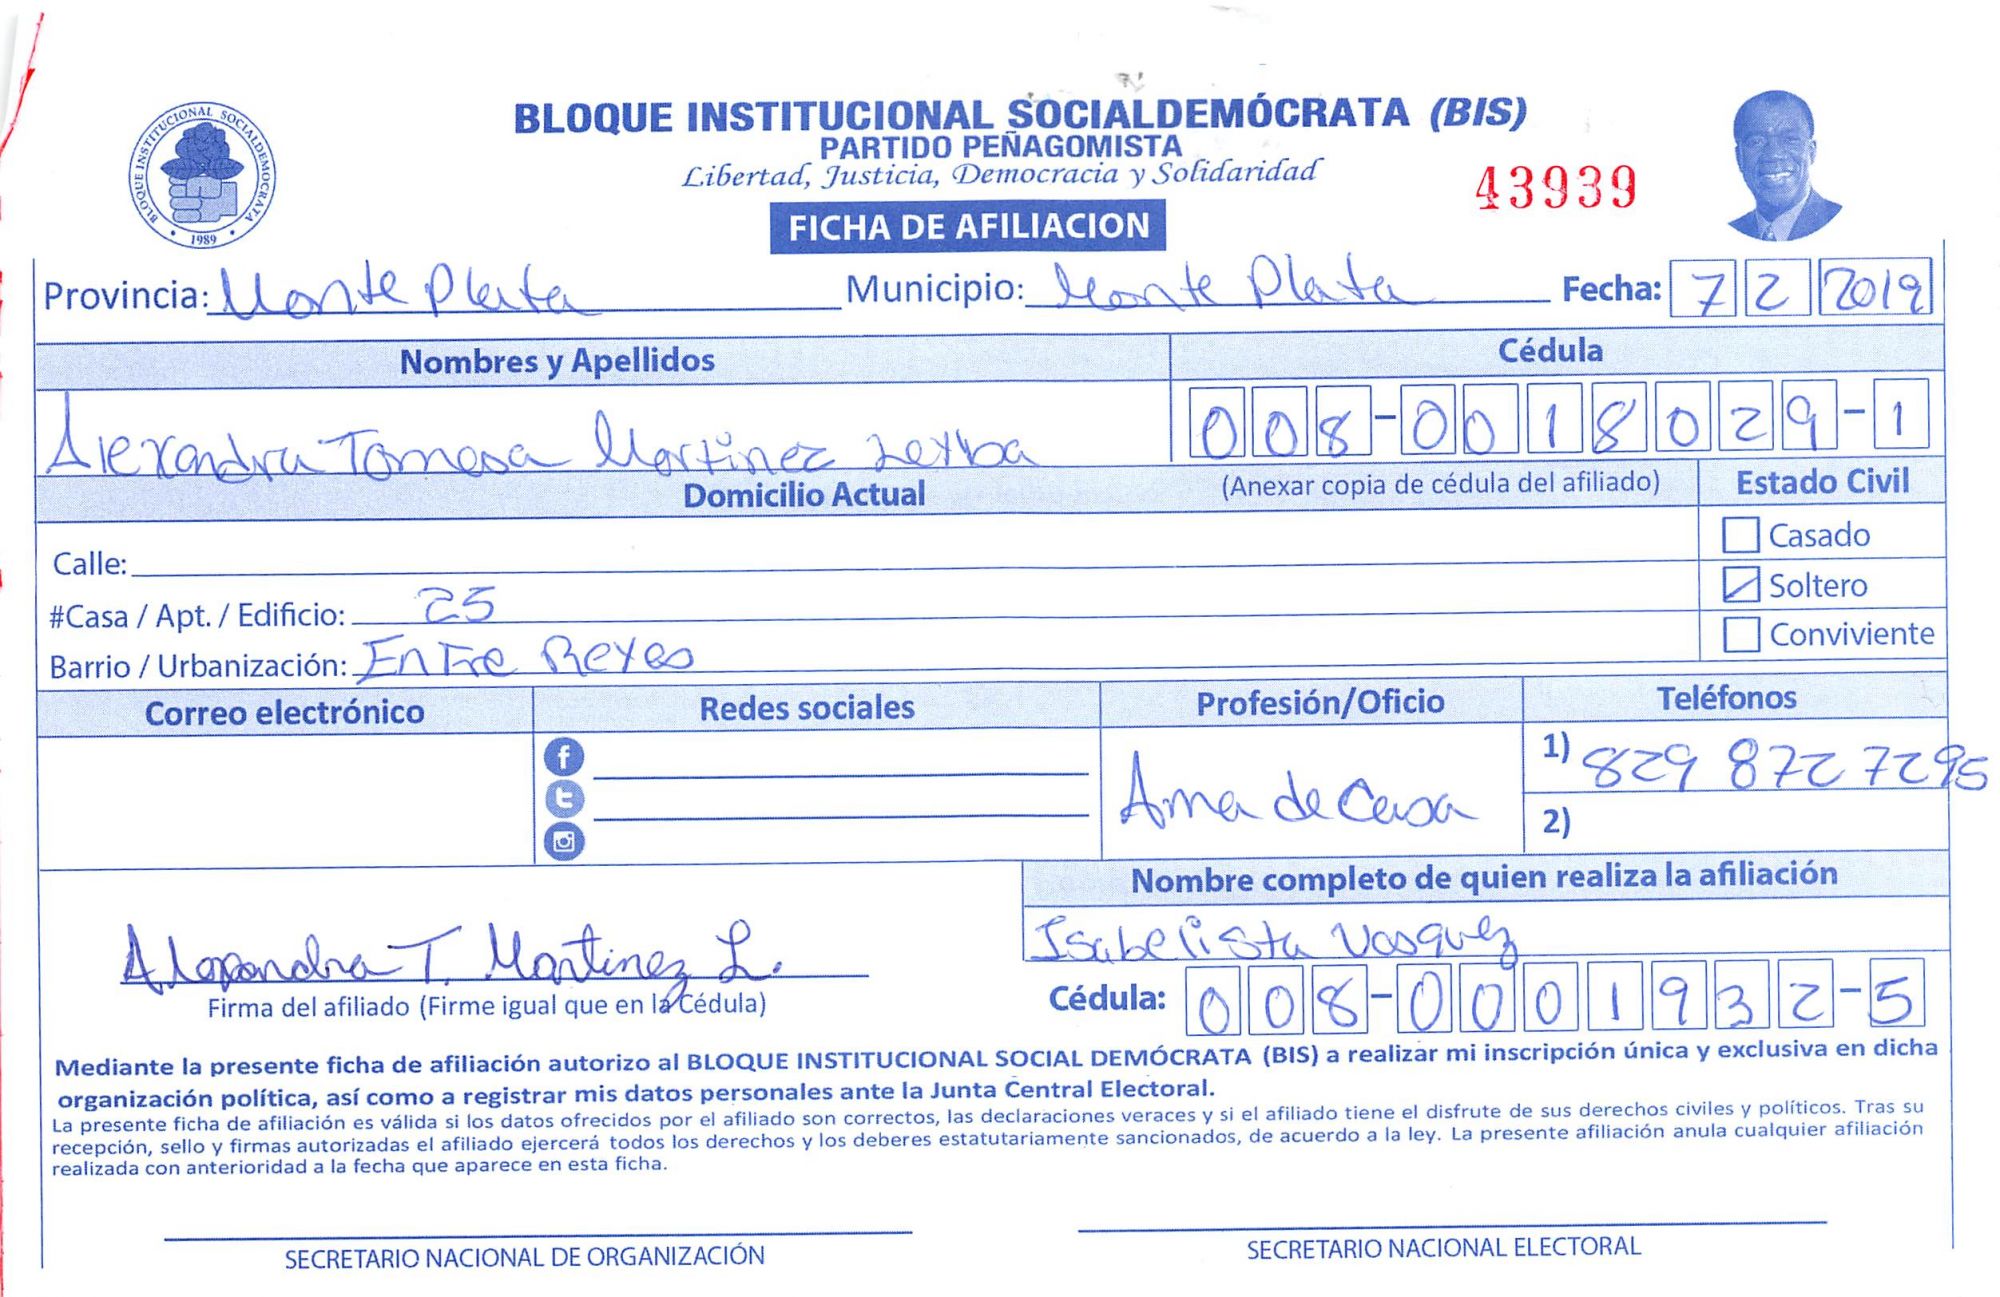 BLOQUE INSTITUCIONAL SOCIALDEMÓCRATA (BIS)
PARTIDO PEÑAGOMISTA
Libertad, Justicia, Democracia y Solidaridad
43939
FICHA DE AFILIACION
BLOQUE INSTITUCIONAL SOCIALDEMOCRATA
1989
Provincia: Monte Plata Municipio: Monte Plata Fecha: 7 2 2019
Nombres y Apellidos Cédula
Alexandra Tomasa Martinez Leyba 008-0018029-1
Domicilio Actual (Anexar copia de cédula del afiliado) Estado Civil
Calle: Casado
#Casa / Apt. / Edificio: 25 Soltero
Barrio / Urbanización: Entre Reyes Conviviente
Correo electrónico Redes sociales Profesión/Oficio Teléfonos
Ama de Casa 1) 829 872 7295
2)
Nombre completo de quien realiza la afiliación
Isabelista Vasquez
Alexandra T. Martinez L.
Firma del afiliado (Firme igual que en la Cédula) Cédula: 008-0001932-5
Mediante la presente ficha de afiliación autorizo al BLOQUE INSTITUCIONAL SOCIAL DEMÓCRATA (BIS) a realizar mi inscripción única y exclusiva en dicha
organización política, así como a registrar mis datos personales ante la Junta Central Electoral.
La presente ficha de afiliación es válida si los datos ofrecidos por el afiliado son correctos, las declaraciones veraces y si el afiliado tiene el disfrute de sus derechos civiles y políticos. Tras su
recepción, sello y firmas autorizadas el afiliado ejercerá todos los derechos y los deberes estatutariamente sancionados, de acuerdo a la ley. La presente afiliación anula cualquier afiliación
realizada con anterioridad a la fecha que aparece en esta ficha.
SECRETARIO NACIONAL DE ORGANIZACIÓN SECRETARIO NACIONAL ELECTORAL